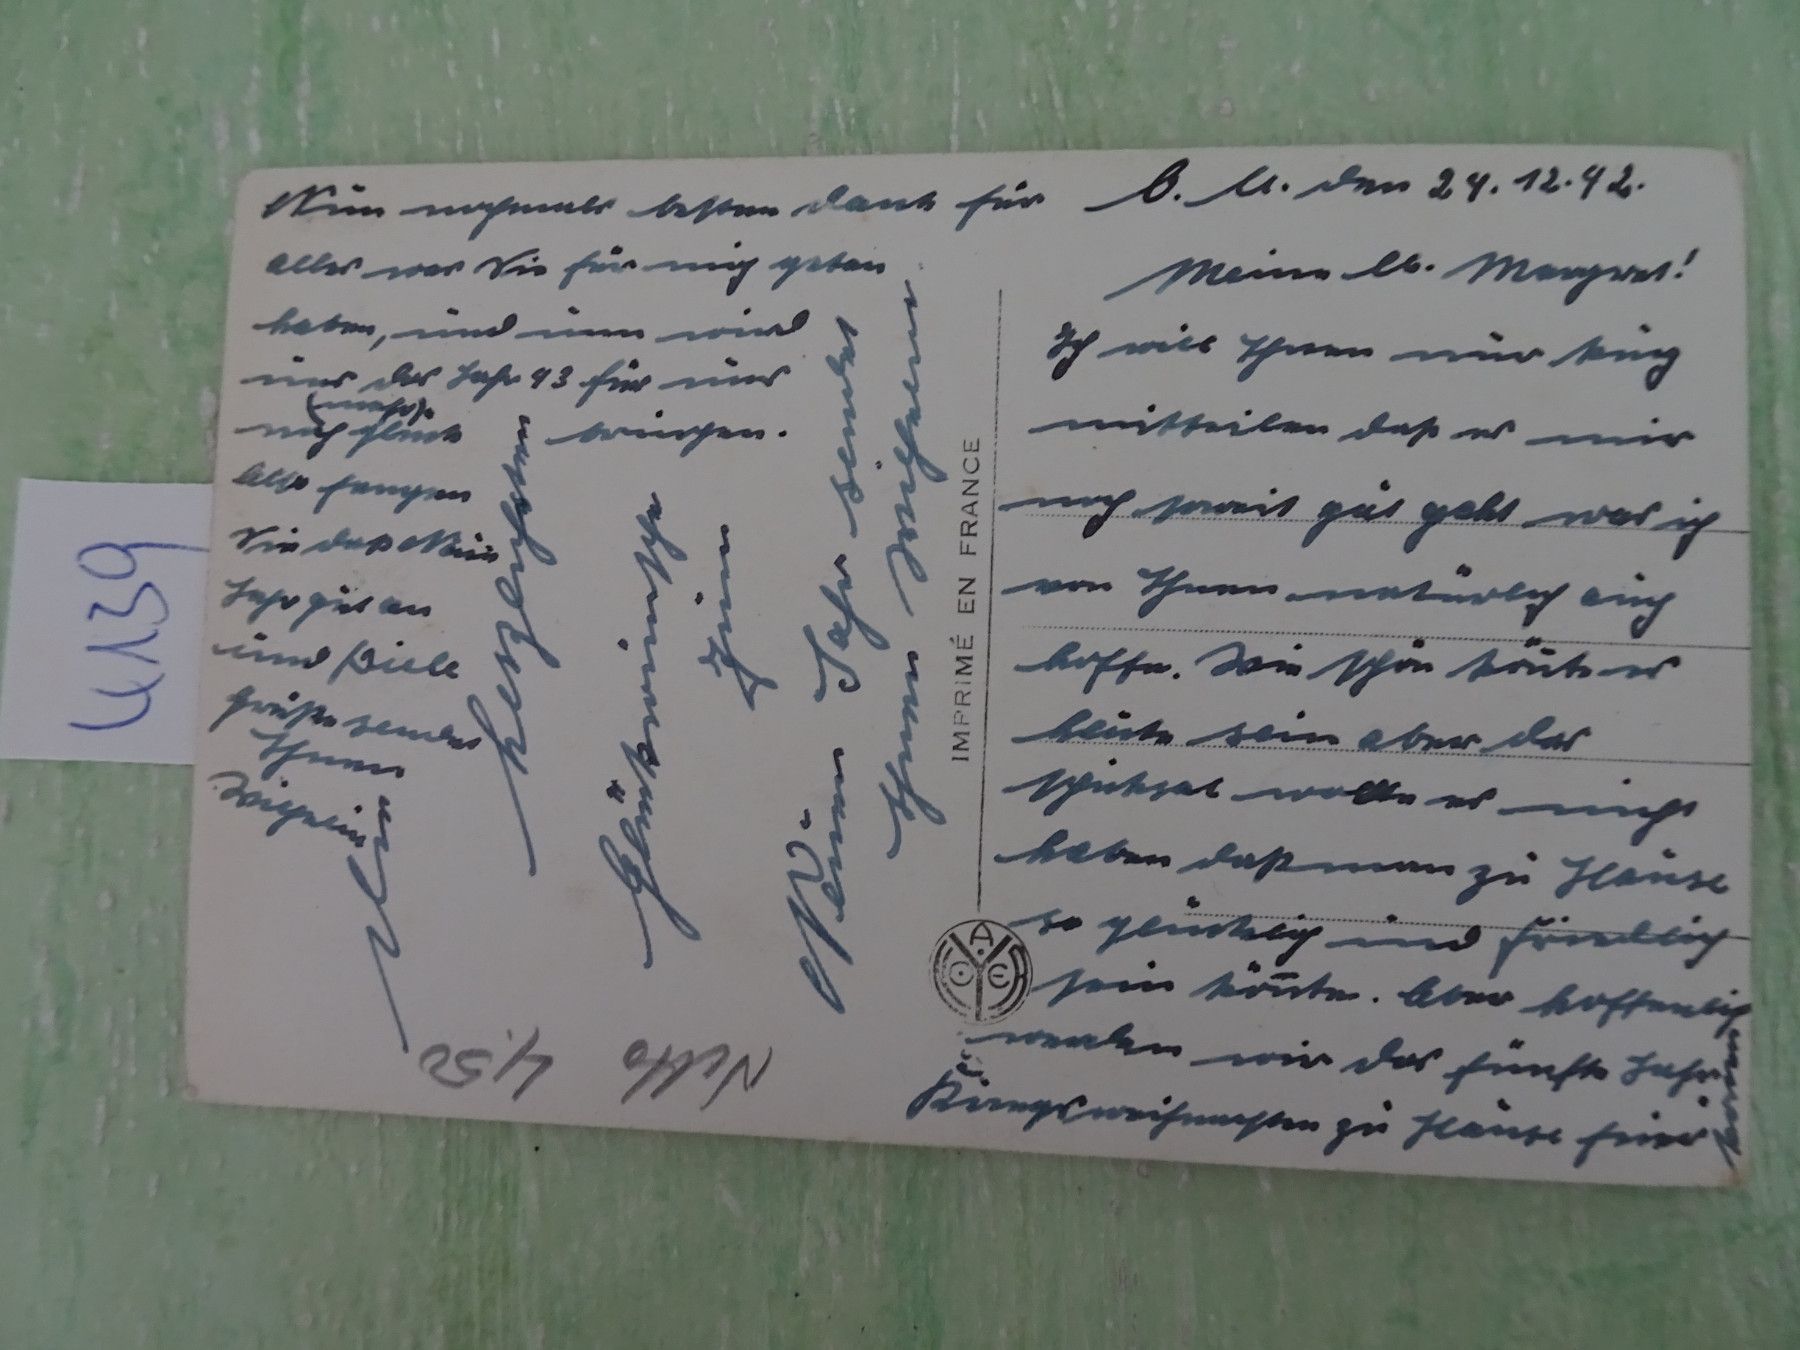 O. U. den 24.12.42.
Meine lb. Margret!
Ich will Ihnen nur kurz
mitteilen daß es mir
noch soweit gut geht was ich
von Ihnen natürlich auch
hoffe. Wie schön könte es
heute sein aber das
schicksal wollte es nicht
haben daß man zu Hause
so glücklich und friedlich
sein könnte. Aber hoffenlich
werden wir das fünfte Jahr
Kriegsweihnachten zu Hause feiern
Nun nochmals besten dank für
alles was Sie für mich getan
haben, und nun wird
uns das Jahr 43 für uns
(mehr)
auch glück bringen.
Also fangen
Sie das Neue
Jahr gut an
und Viele
Grüße sendet
Ihnen
Wilhelm
Die
herzlichsten
Glückwünsche
zum
Neuen Jahr sendet
Ihnen Wilhelm
IMPRIMÉ EN FRANCE
Netto 4,50
4139